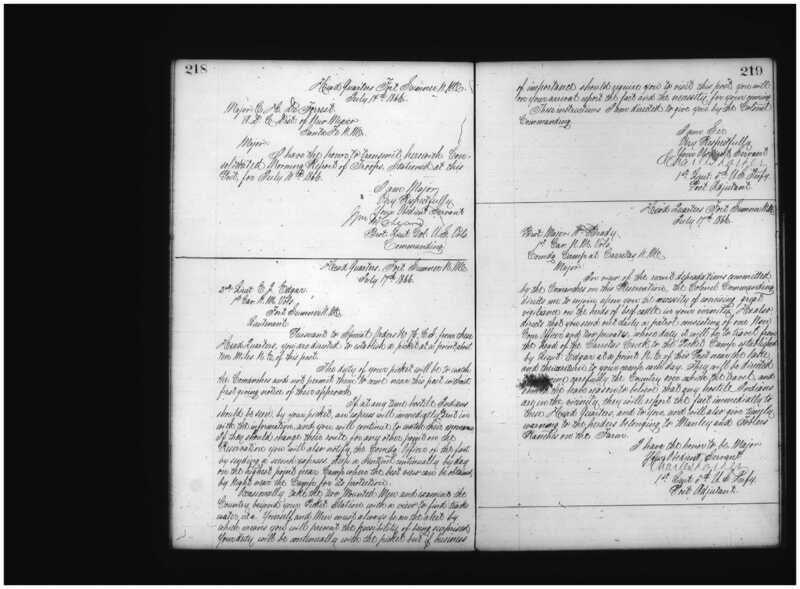 218
Head Quarters Fort Sumner N. Mc
July 17th 1866.
Major C. H. De Forrest
A. A. G. Dist. of New Mexico
Santa Fe N. M.
Major
I have the honor to transmit, herewith Con-
solidated Morning Report of Troops, Stationed at this
Post, for July 1866.
I am Major
Very Respectfully
Your Obedient Servant
Brvt. Lieut. Col. U.S. Vols
Commanding
Head Quarters, Fort Sumner N. Mc
July 17th 1866.
2nd Lieut E. J. Edgar
1st Cav. N. M. Vols
Fort Sumner N. Mc
Lieutenant
Pursuant to Special Orders No. C.S. from these
Head Quarters, you are directed to establish a picket at a point about
ten Miles N. E. of this post.
The duty of your picket will be to watch
the Comanches and not permit them to come near this post without
first giving notice of their approach.
If at any time hostile Indians
should be seen, by your picket, an express will immediately sent in
with the information, and you will continue to watch their movements
if they should change their route for any other point on the
Reservation you will also notify the Comdg Officer of the fact
by sending a second express. Keep a Sentinel continually by day
on the highest point near Camp where the best view can be obtained,
by Night near the Camp for its protection.
Occasionally take the two Mounted Men and examine the
Country beyond your Picket Station with a view to find trails
water, &c. Yourself and Men must always be on the alert by
which means you will prevent the possibility of being surprised
Your duty will be continually with the picket but if business
219
of importance should require you to visit this post, you will
on your arrival report the fact and the necessity, for your coming
These instructions I am directed to give you by the Colonel
Commanding
I am Sir
Very Respectfully
Your Obedient Servant
1st Lieut. 5th U.S. Infy.
Post Adjutant.
Head Quarters Fort Sumner N. Mc
July 17th 1866.
Brvt Major Wm Brady
1st Cav. N. M. Vols.
Comdg Camp at Carretas N. Mc.
Major
In view of the recent depredations committed
by the Comanches on this Reservation, the Colonel Commanding
directs me to enjoin upon you the necessity of exercising great
vigilance on the herds of beef cattle in your vicinity. He also
directs that you send out daily a patrol consisting of one Non
Com Officer and two privates, whose duty it will be to travel from
the head of the Carretas Creek to the Picket Camp established
by Lieut. Edgar at a point N. E. of this Post near the
and thence to your camp each day. They will be directed
to carefully the Country over which they travel and
should they have reason to believe that any hostile Indians
are in the vicinity, they will report the fact immediately to
these Head Quarters, and to you, and will also give timely
warning to the herders belonging to Stanley and
Ranches on the Farm.
I have the honor to be, Major
Your Obedient Servant
1st Lieut. 5th U.S. Infy.
Post Adjutant.